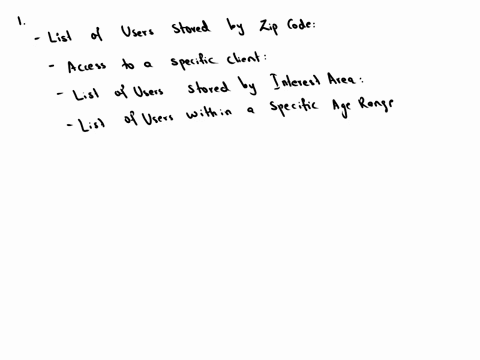 1.
- List of Users Stored by Zip Code:
- Access to a specific client:
- List of Users stored by Interest Area:
- List of Users within a Specific Age Range